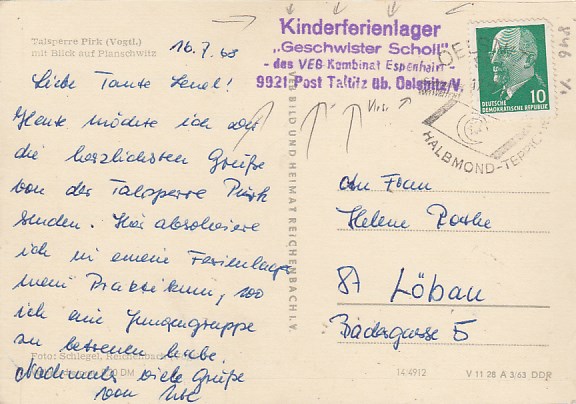 Talsperre Pirk (Vogtl.)
mit Blick auf Planschwitz
16.7.68
Liebe Tante Lenel!
Heute möchte ich Dir
die herzlichsten Grüße
von der Talsperre Pirk
senden. Hier absolviere
ich in einem Ferienlager
mein Praktikum, wo
ich eine Jungengruppe
zu betreuen habe.
Nochmals viele Grüße
von
Foto: Schlegel, Reichenbach
DM
VEB BILD UND HEIMAT REICHENBACH I. V.
Kinderferienlager
„Geschwister Scholl"
- des VEB Kombinat Espenhain
9921 Post Taltitz üb. Oelsnitz/V.
DEUTSCHE
DEMOKRATISCHE REPUBLIK
10
HALBMOND-TEPPICHE
An Frau
Helene
87 Löbau
Badergasse 5
14/4912
V 11 28 A 3/63 DDR